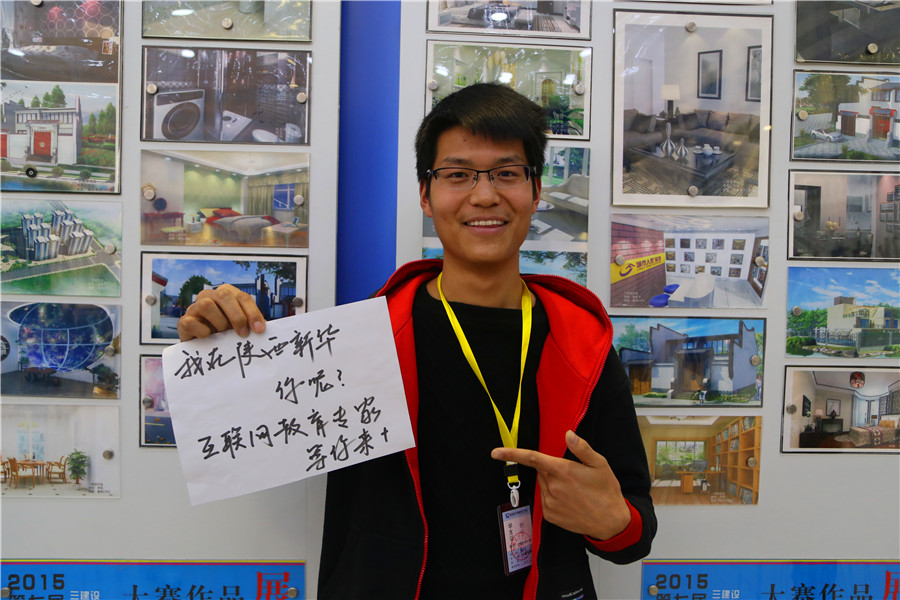 我在陕西新华
你呢？
互联网教育专家
等你来+
2015
三建设
大赛作品展
2015
三建设
大赛作品展